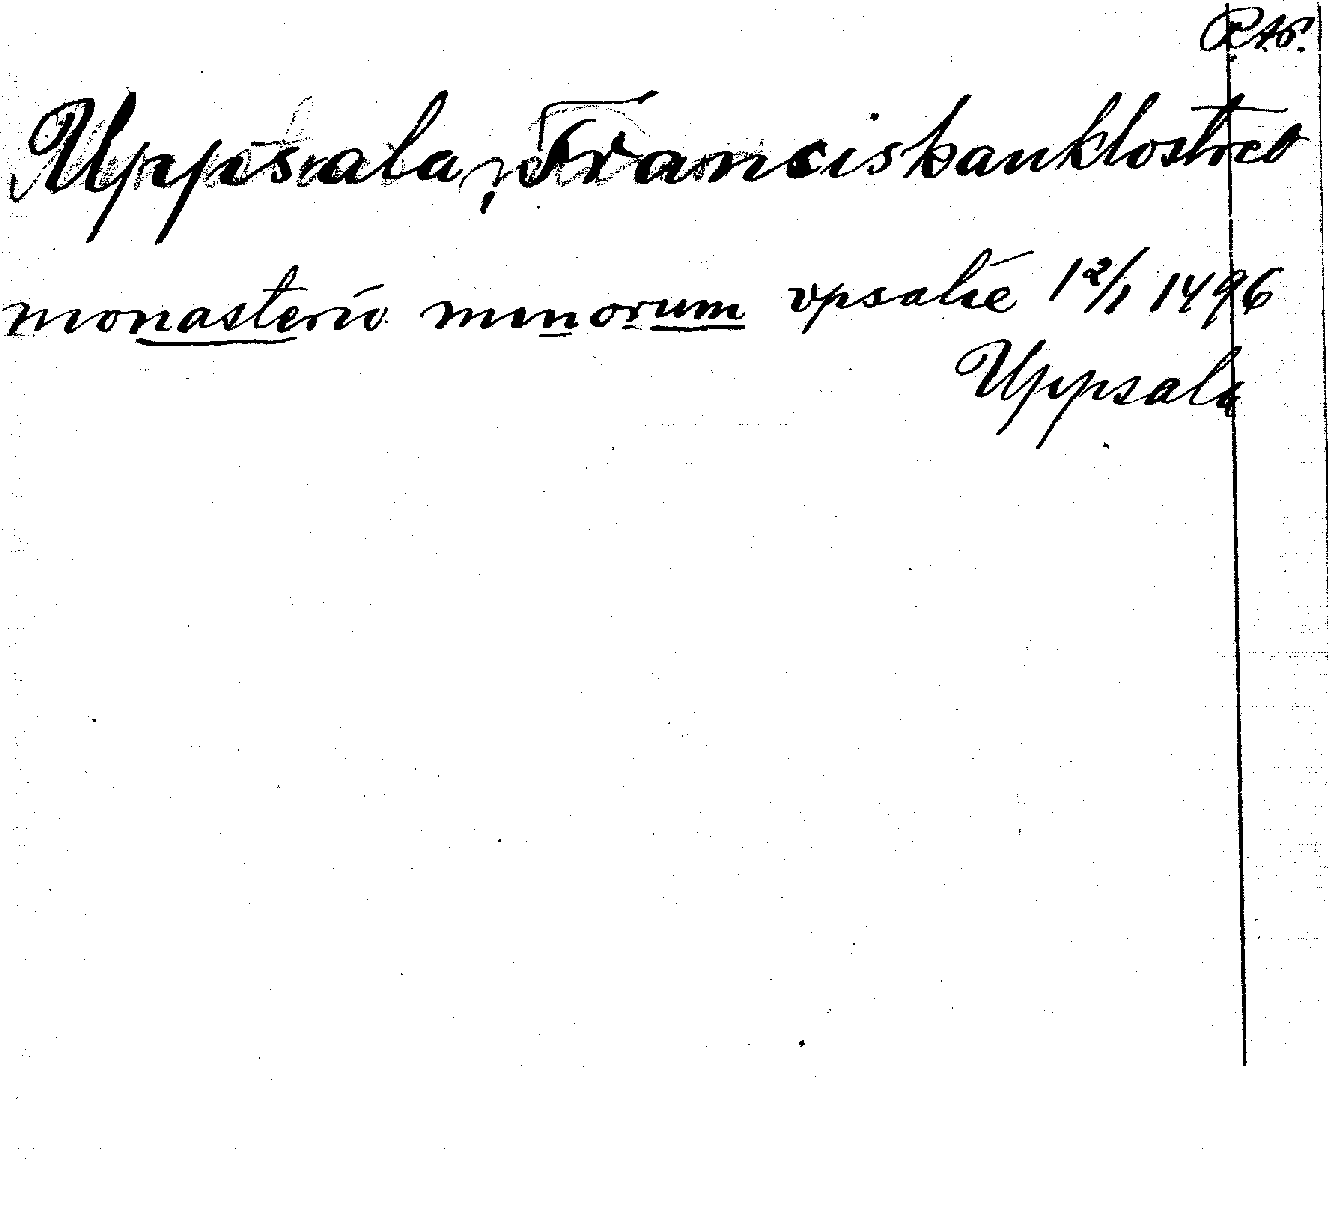 R.A.P.
Uppsala, Franciskanklostret
monasterio minorum vpsalie 12/1 1496
Uppsala